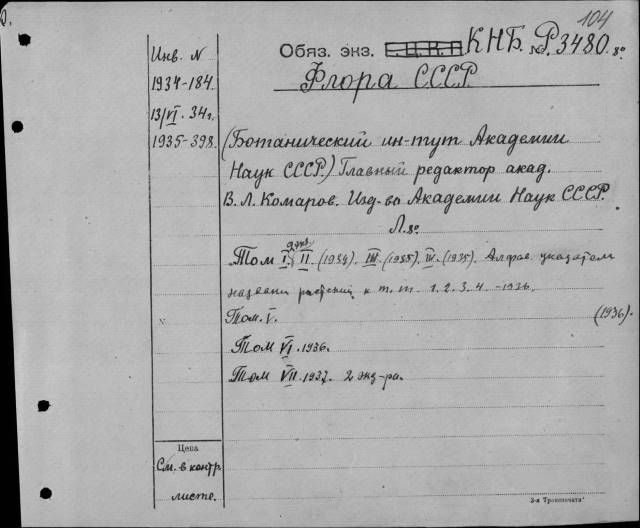 104
Инв. N
Обяз. экз. Г.Ц.К.П КНБ. № Р.3480. 8º
1934-184.
Флора СССР.
13/VI. 34г.
1935-398.
(Ботанический ин-тут Академии
Наук СССР.) Главный редактор акад.
В. Л. Комаров. Изд-во Академии Наук СССР.
Л. 8º
Том I, II. (1934). III. (1935). IV. (1935). Алфав. указатели
названий растений к т. т. 1. 2. 3. 4. -1936.
Том. V. (1936).
Том VI. 1936.
Том VII. 1937. 2 экз-ра.
Цена
См. в контр
листе.
3-я Транспечати